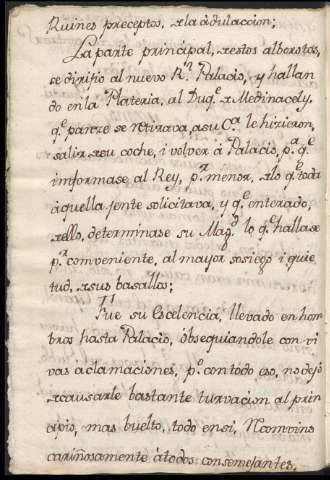 Ruines preceptos, xla adulacion;
La parte principal, xestos alborotos,
se dirijio al nuevo R.l Palacio, y hallan
do en la Plateria, al Duq.e x Medinacely,
q.e parece se retirava, a su C.a le hizieron,
salir xsu coche, i volver à Palacio, p.a q.e
imformase al Rey, p.r menor, xlo q.e toda
àquella jente solicitava, y q.e enterado,
xello, determinase su Mag.d lo q.e hallase
p.r comveniente, al mayor sosiego i quie
tud, xsus basallos;
Fue su Escelencia, llevado en hom
bros hasta Palacio, obsequiandole con vi
vas aclamaciones, p.o con todo eso, no dejo
xcausarle bastante turvacion al prin
cipio, mas buelto, todo en si, Ncomvino
cariñosamente à todos con semejantes,